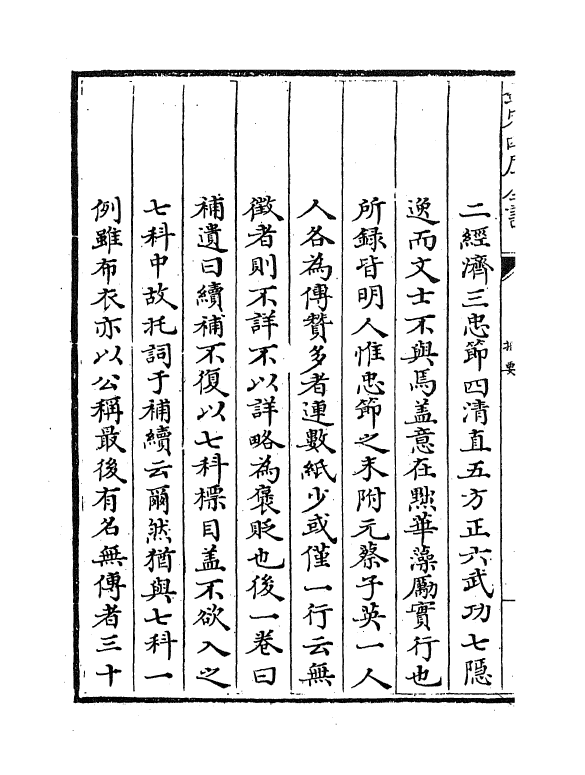 二經濟三忠節四清直五方正六武功七隠
逸而文士不與焉盖意在黜華藻勵實行也
所録皆明人惟忠節之末附元蔡子英一人
人各為傳贊多者連數紙少或僅一行云無
徴者則不詳不以詳略為褒貶也後一卷曰
補遺曰續補不復以七科標目盖不欲入之
七科中故托詞于補續云爾然猶與七科一
例雖布衣亦以公稱最後有名無傳者三十
提要